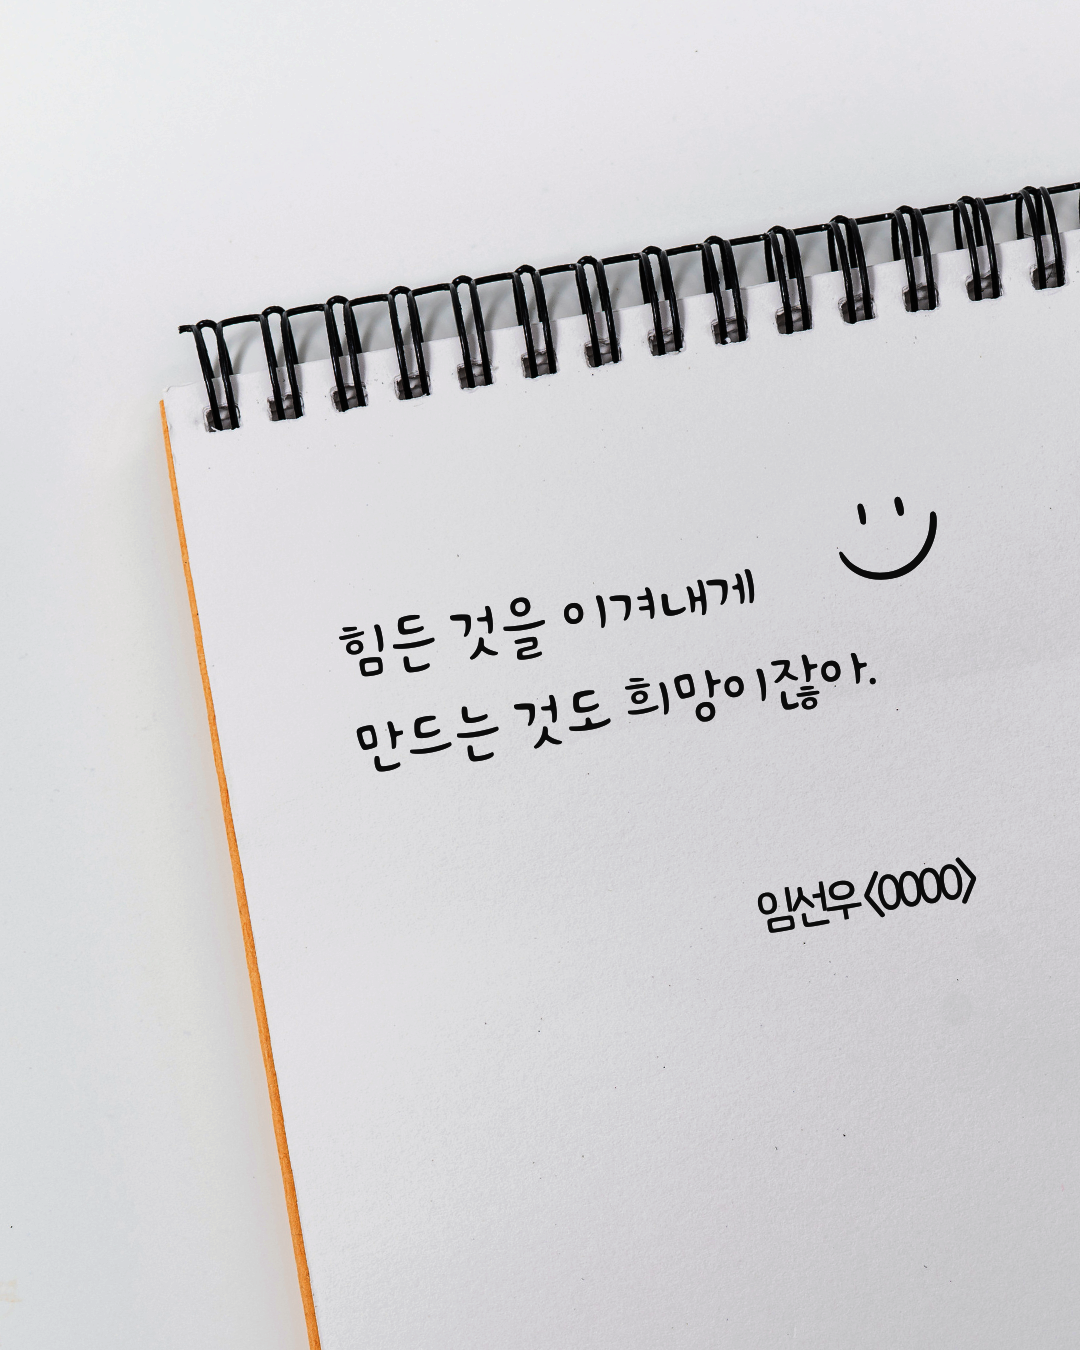 힘든 것을 이겨내게
만드는 것도 희망이잖아.
임선우<0000>